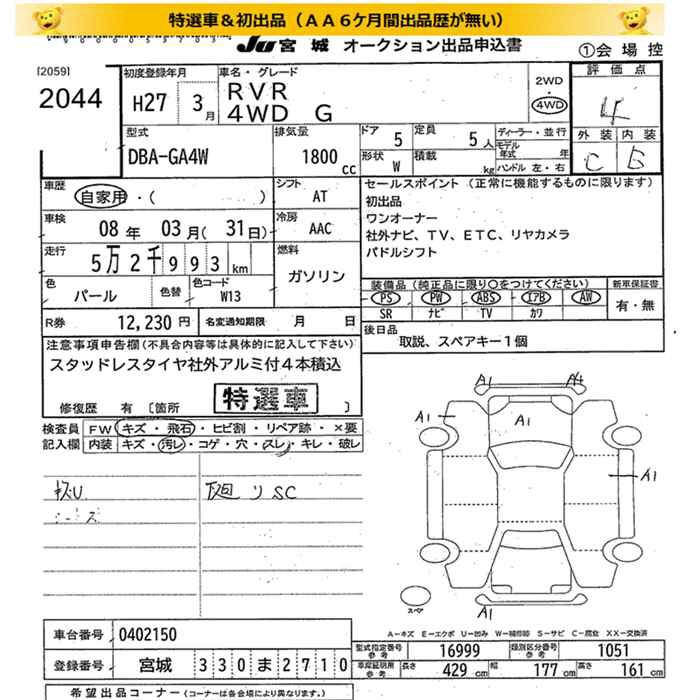 特選車＆初出品（ＡＡ６ケ月間出品歴が無い）
JU 宮 城 オークション出品申込書
①会 場 控
[2059]
2044
初度登録年月
H27 3月
車名・グレード
RVR
4WD G
2WD
・
4WD
評 価 点
4
外 装 内 装
C B
型式
DBA-GA4W
排気量
1800 cc
ドア 5
定員 5人
形状 W
積載 kg
ディーラー・並 行
モデル年式 年
ハンドル 左・右
車歴
自家用・( )
シフト
AT
車検
08 年 03 月( 31 日)
冷房
AAC
走行
5万2千993 km
燃料
ガソリン
色
パール
色替
色コード
W13
R券 12,230 円
名変通知期限 月 日
セールスポイント（正常に機能するものに限ります）
初出品
ワンオーナー
社外ナビ、ＴＶ、ＥＴＣ、リヤカメラ
パドルシフト
装備品（純正品に限り○をつけてください）
PS PW ABS エアB AW
SR ナビ TV カワ
新車保証書
有・無
後日品
取説、スペアキー１個
注意事項申告欄(不具合内容等は具体的に記入して下さい)
スタッドレスタイヤ社外アルミ付４本積込
特選車
修復歴 有 〔箇所 〕
検査員記入欄
FW キズ・飛石・ヒビ割・リペア跡・×要
内装 キズ・汚レ・コゲ・穴・スレ・キレ・破レ
下廻りSC
A1
A1
A1
A1
A1
スペア
A1
A－キズ E－エクボ U－凹み W－補修跡 S－サビ C－腐食 XX－交換済
車台番号 0402150
登録番号 宮城 330ま2710
型式指定番号参考 16999
類別区分番号参考 1051
車庫証明用参考 長さ 429 cm 幅 177 cm 高さ 161 cm
希望出品コーナー（コーナーは各会場により異なります。）